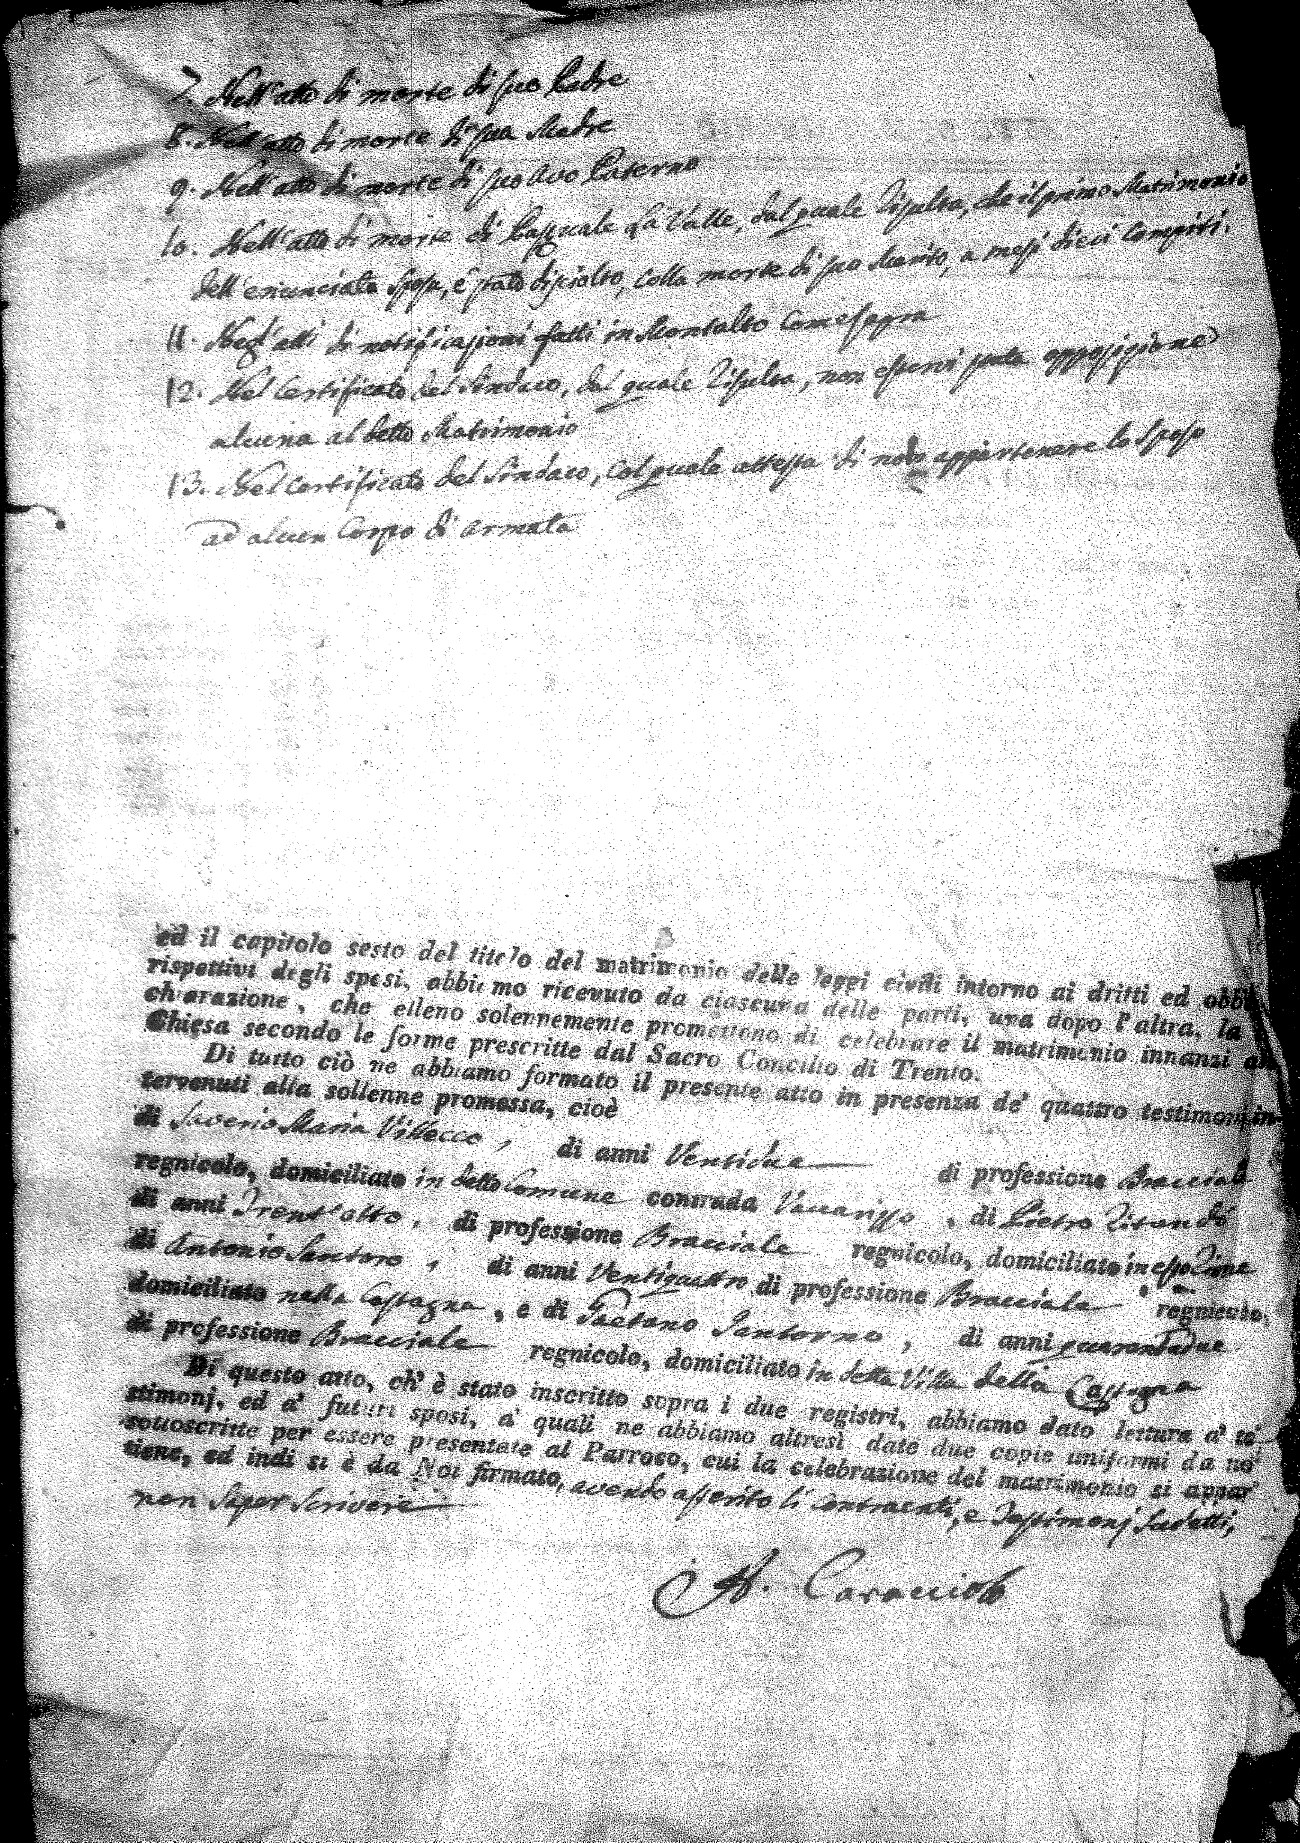 7. Nell'atto di morte di suo Padre
8. Nell'atto di morte di sua Madre
9. Nell'atto di morte di suo Avo Paterno
10. Nell'atto di morte di Pasquale La Valle, dal quale risulta, che il primo Matrimonio
dell'enunciata Sposa, è stato disciolto, colla morte di suo Marito, a mesi dieci compiti.
11. Negl'atti di notificazioni fatti in Montalto Come sopra
12. Nel Certificato del Sindaco, dal quale risulta, non essersi fatta opposizione
alcuna al detto Matrimonio
13. Nel Certificato del Sindaco, col quale attesta di non appartenere lo Sposo
ad alcun Corpo di Armata
ed il capitolo sesto del titolo del matrimonio delle leggi civili intorno ai dritti ed obbli
rispettivi degli sposi, abbiamo ricevuto da ciascuna delle parti, una dopo l'altra, la
chiarazione, che elleno solennemente promettono di celebrare il matrimonio innanzi al
Chiesa secondo le forme prescritte dal Sacro Concilio di Trento.
Di tutto ciò ne abbiamo formato il presente atto in presenza de' quattro testimonj in-
tervenuti alla sollenne promessa, cioè
di Saverio Maria Villecco, di anni Ventidue di professione Bracciale
regnicolo, domiciliato in detto Comune contrada Vaccarizzo, di Pietro
di anni Trent'otto, di professione Bracciale regnicolo, domiciliato in
di Antonio Santoro, di anni Ventiquattro di professione Bracciale regnicolo,
domiciliato nella Castagna, e di Gaetano Santorno, di anni quarantadue
di professione Bracciale regnicolo, domiciliato in detta Villa della Castagna
Di questo atto, ch' è stato inscritto sopra i due registri, abbiamo dato lettura a' te
stimonj, ed a' futuri sposi, a' quali ne abbiamo altresì date due copie uniformi da noi
sottoscritte per essere presentate al Parroco, cui la celebrazione del matrimonio si appar
tiene, ed indi si è da Noi firmato, avendo asserito li contraenti, e Testimonj Sudetti,
non Saper Scrivere
Caracciolo